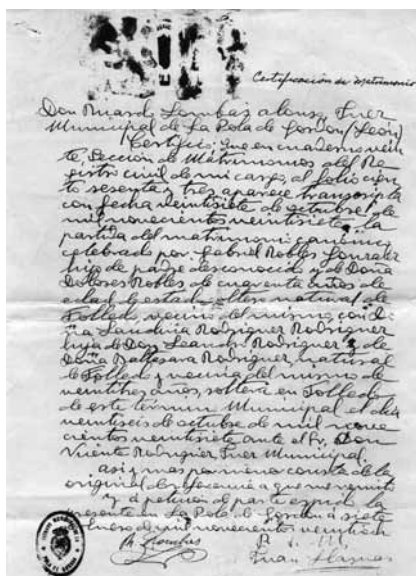 Certificación de Matrimonio
Don Ricardo Lombas Alonso, Juez
Municipal de La Pola de Gordon (León)
Certifico: que en cuaderno vein
te, Sección de Matrimonios del Re
gistro civil de mi cargo, al folio cien
to sesenta y tres aparece transcripta
con fecha veintisiete de octubre de
mil novecientos veintisiete la
partida del matrimonio canónico
celebrado por Gabriel Robles Gonzalez
hijo de padre desconocido y de Doña
Dolores Robles de cuarenta años de
edad de estado soltero natural de
Folledo, vecino del mismo, con Do
ña Laudivia Rodriguez Rodriguez
hija de Don Leandro Rodriguez y de
Doña Baltasara Rodriguez, natural
de Folledo y vecina del mismo de
veintitres años, soltera en Folledo
de este término Municipal el dia
veintiseis de octubre de mil nove
cientos veintisiete ante el Sr. Don
Vicente Rodriguez Juez Municipal.
asi y mas por menor consta de la
original de referencia a que me remito
y a peticion de parte expido la
presente en La Pola de Gordón a siete
Enero de mil novecientos veintiocho
R. Lombas
Juan